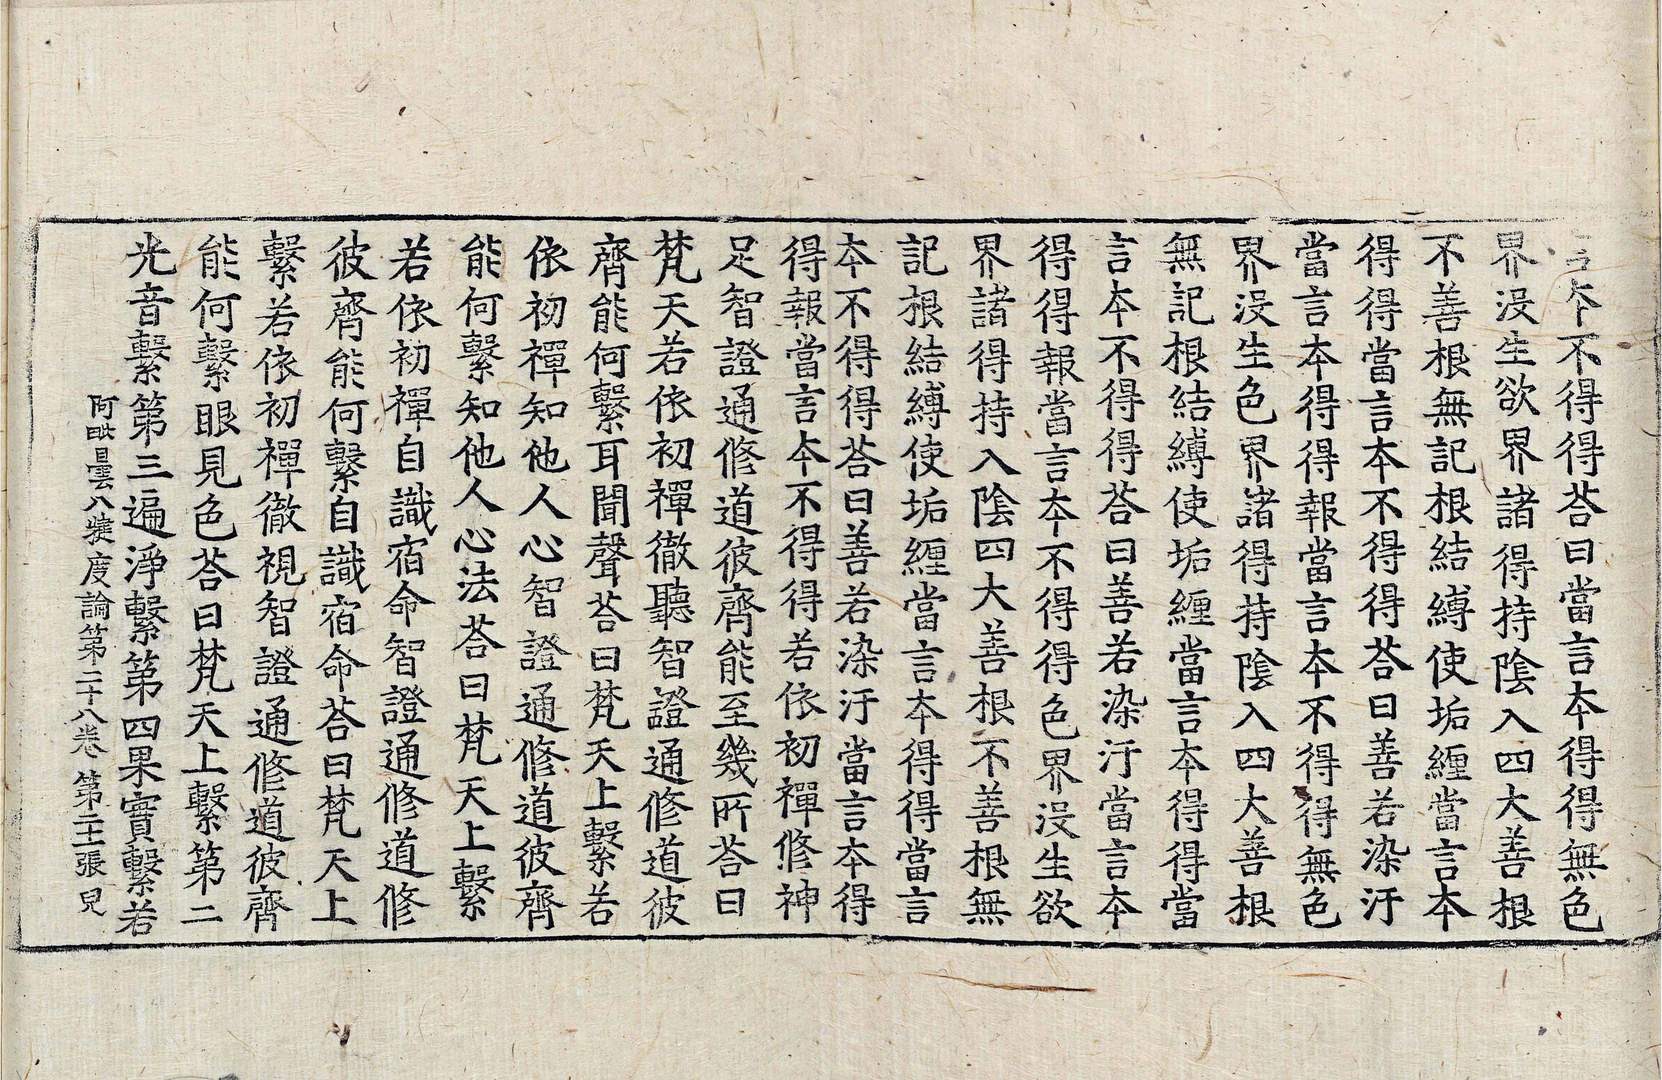 言本不得得荅曰當言本得得無色
界没生欲界諸得持陰入四大善根
不善根無記根結縛使垢纏當言本
得得當言本不得得荅曰善若染汙
當言本得得報當言本不得得無色
界没生色界諸得持陰入四大善根
無記根結縛使垢纏當言本得得當
言本不得得荅曰善若染汙當言本
得得報當言本不得得色界没生欲
界諸得持入陰四大善根不善根無
記根結縛使垢纏當言本得得當言
本不得得荅曰善若染汙當言本得
得報當言本不得得若依初禪修神
足智證通修道彼齊能至幾所荅曰
梵天若依初禪徹聽智證通修道彼
齊能何繫耳聞聲荅曰梵天上繫若
依初禪知他人心智證通修道彼齊
能何繫知他人心法荅曰梵天上繫
若依初禪自識宿命智證通修道修
彼齊能何繫自識宿命荅曰梵天上
繫若依初禪徹視智證通修道彼齊
能何繫眼見色荅曰梵天上繫第二
光音繫第三遍淨繫第四果實繫若
阿毗曇八犍度論第二十八卷 第二十張 兒